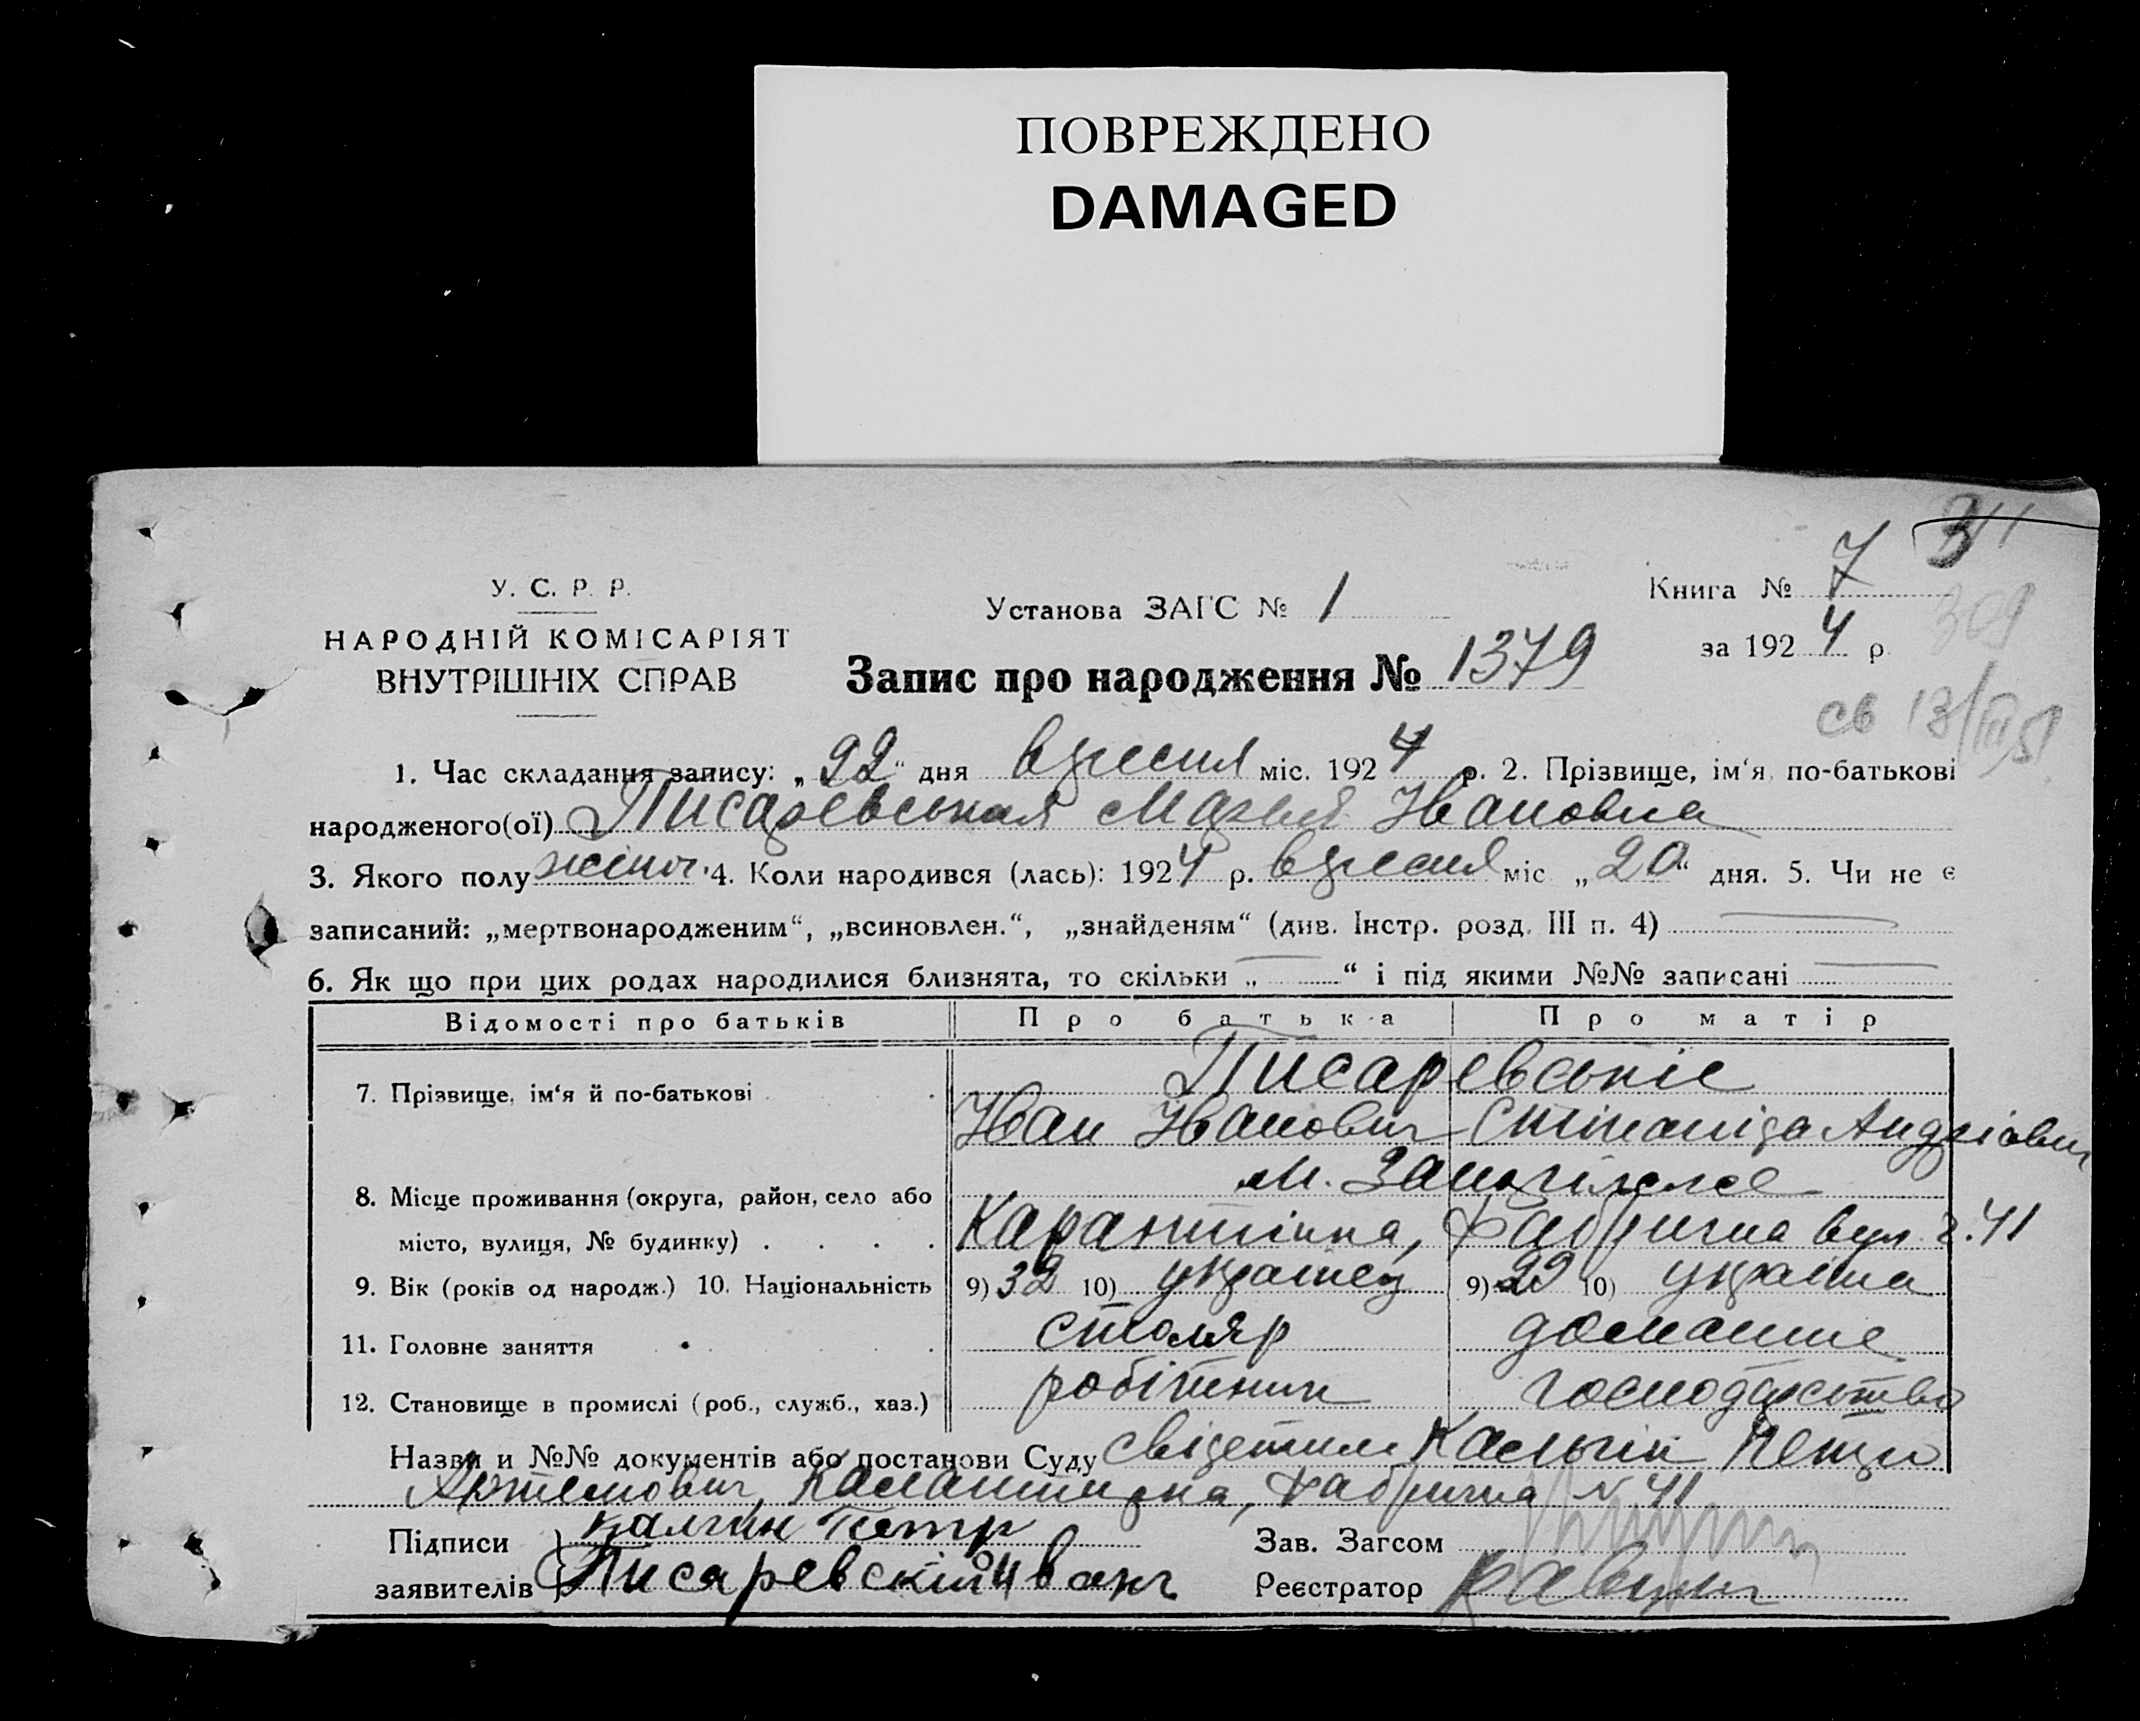 ПОВРЕЖДЕНО
DAMAGED
311
309
У. С. Р. Р.
НАРОДНІЙ КОМІСАРІЯТ
ВНУТРІШНІХ СПРАВ
Установа ЗАГС № 1
Книга № 7
за 1924 р.
Запис про народження № 1379
св 13/III 51
1. Час складання запису: „22“ дня вресня міс. 1924 р. 2. Прізвище, ім'я по-батькові
народженого(ої) Писаревськая Марья Івановна
3. Якого полу жіноч. 4. Коли народився (лась): 1924 р. вресня міс „20“ дня. 5. Чи не є
записаний: „мертвонародженим“, „всиновлен.“, „знайденям“ (див. Інстр. розд. III п. 4)
6. Як що при цих родах народилися близнята, то скільки „ “ і під якими №№ записані
Відомості про батьків Про батька Про матір
7. Прізвище, ім'я й по-батькові Писаревські
Іван Іванович Андріівн
8. Місце проживання (округа, район, село або м. Запоріжже
місто, вулиця, № будинку) Карантінна, Фабрична вул. 41
9. Вік (років од народж.) 10. Національність 9) 32 10) украінец 9) 29 10) україна
11. Головне заняття столяр домашнє
12. Становище в промислі (роб., служб., хаз.) робітник господарство
Назви и №№ документів або постанови Суду свідетили Кальгін Петр
Артемович, Фабрична № 41
Підписи Калгин Петр
заявителів Писаревскій Иванъ
Зав. Загсом
Реєстратор